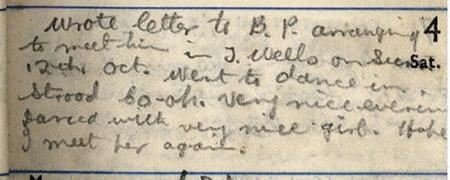 Wrote letter to B. P. arranging 4
to meet him in T. Wells on Sun Sat.
12th Oct. Went to dance in
Strood Co-op. Very nice evening
danced with very nice girl. Hope
I meet her again.